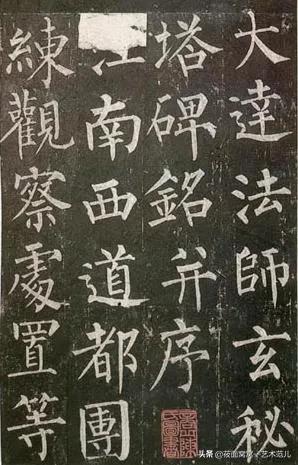 大達法師玄秘
塔碑銘并序
江南西道都團
練觀察處置等
头条 @莜面窝窝丶艺术范儿